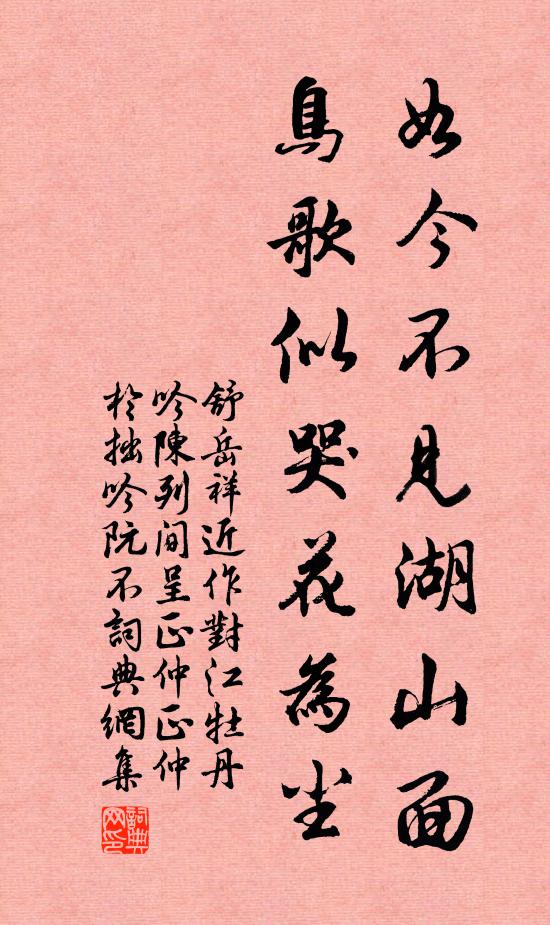 如今不見湖山面
鳥歌似哭花為尘
舒岳祥近作對江牡丹
吟陳列間呈正仲正仲
於拙吟阮不詞典網集
詞典网印